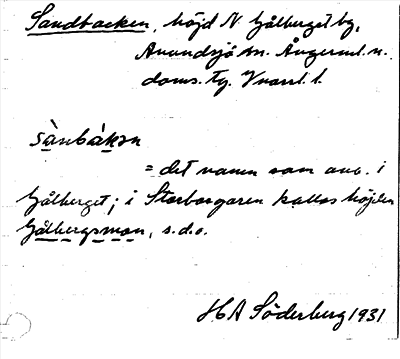 Sandbacken, höjd N. Gålberget by,
Anundsjö sn. Ångerml. n.
doms. tg. Vnorrl. l.
sànbákən
= det namn som anv. i
Gålberget; i Storborgaren kallas höjden
Gålbergsmon, s.d.o.
HA Söderberg 1931